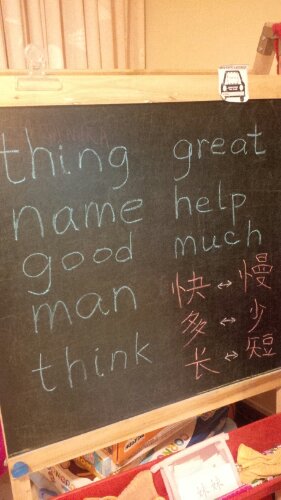 thing
name
good
man
think
great
help
much
快↔慢
多↔少
长↔短